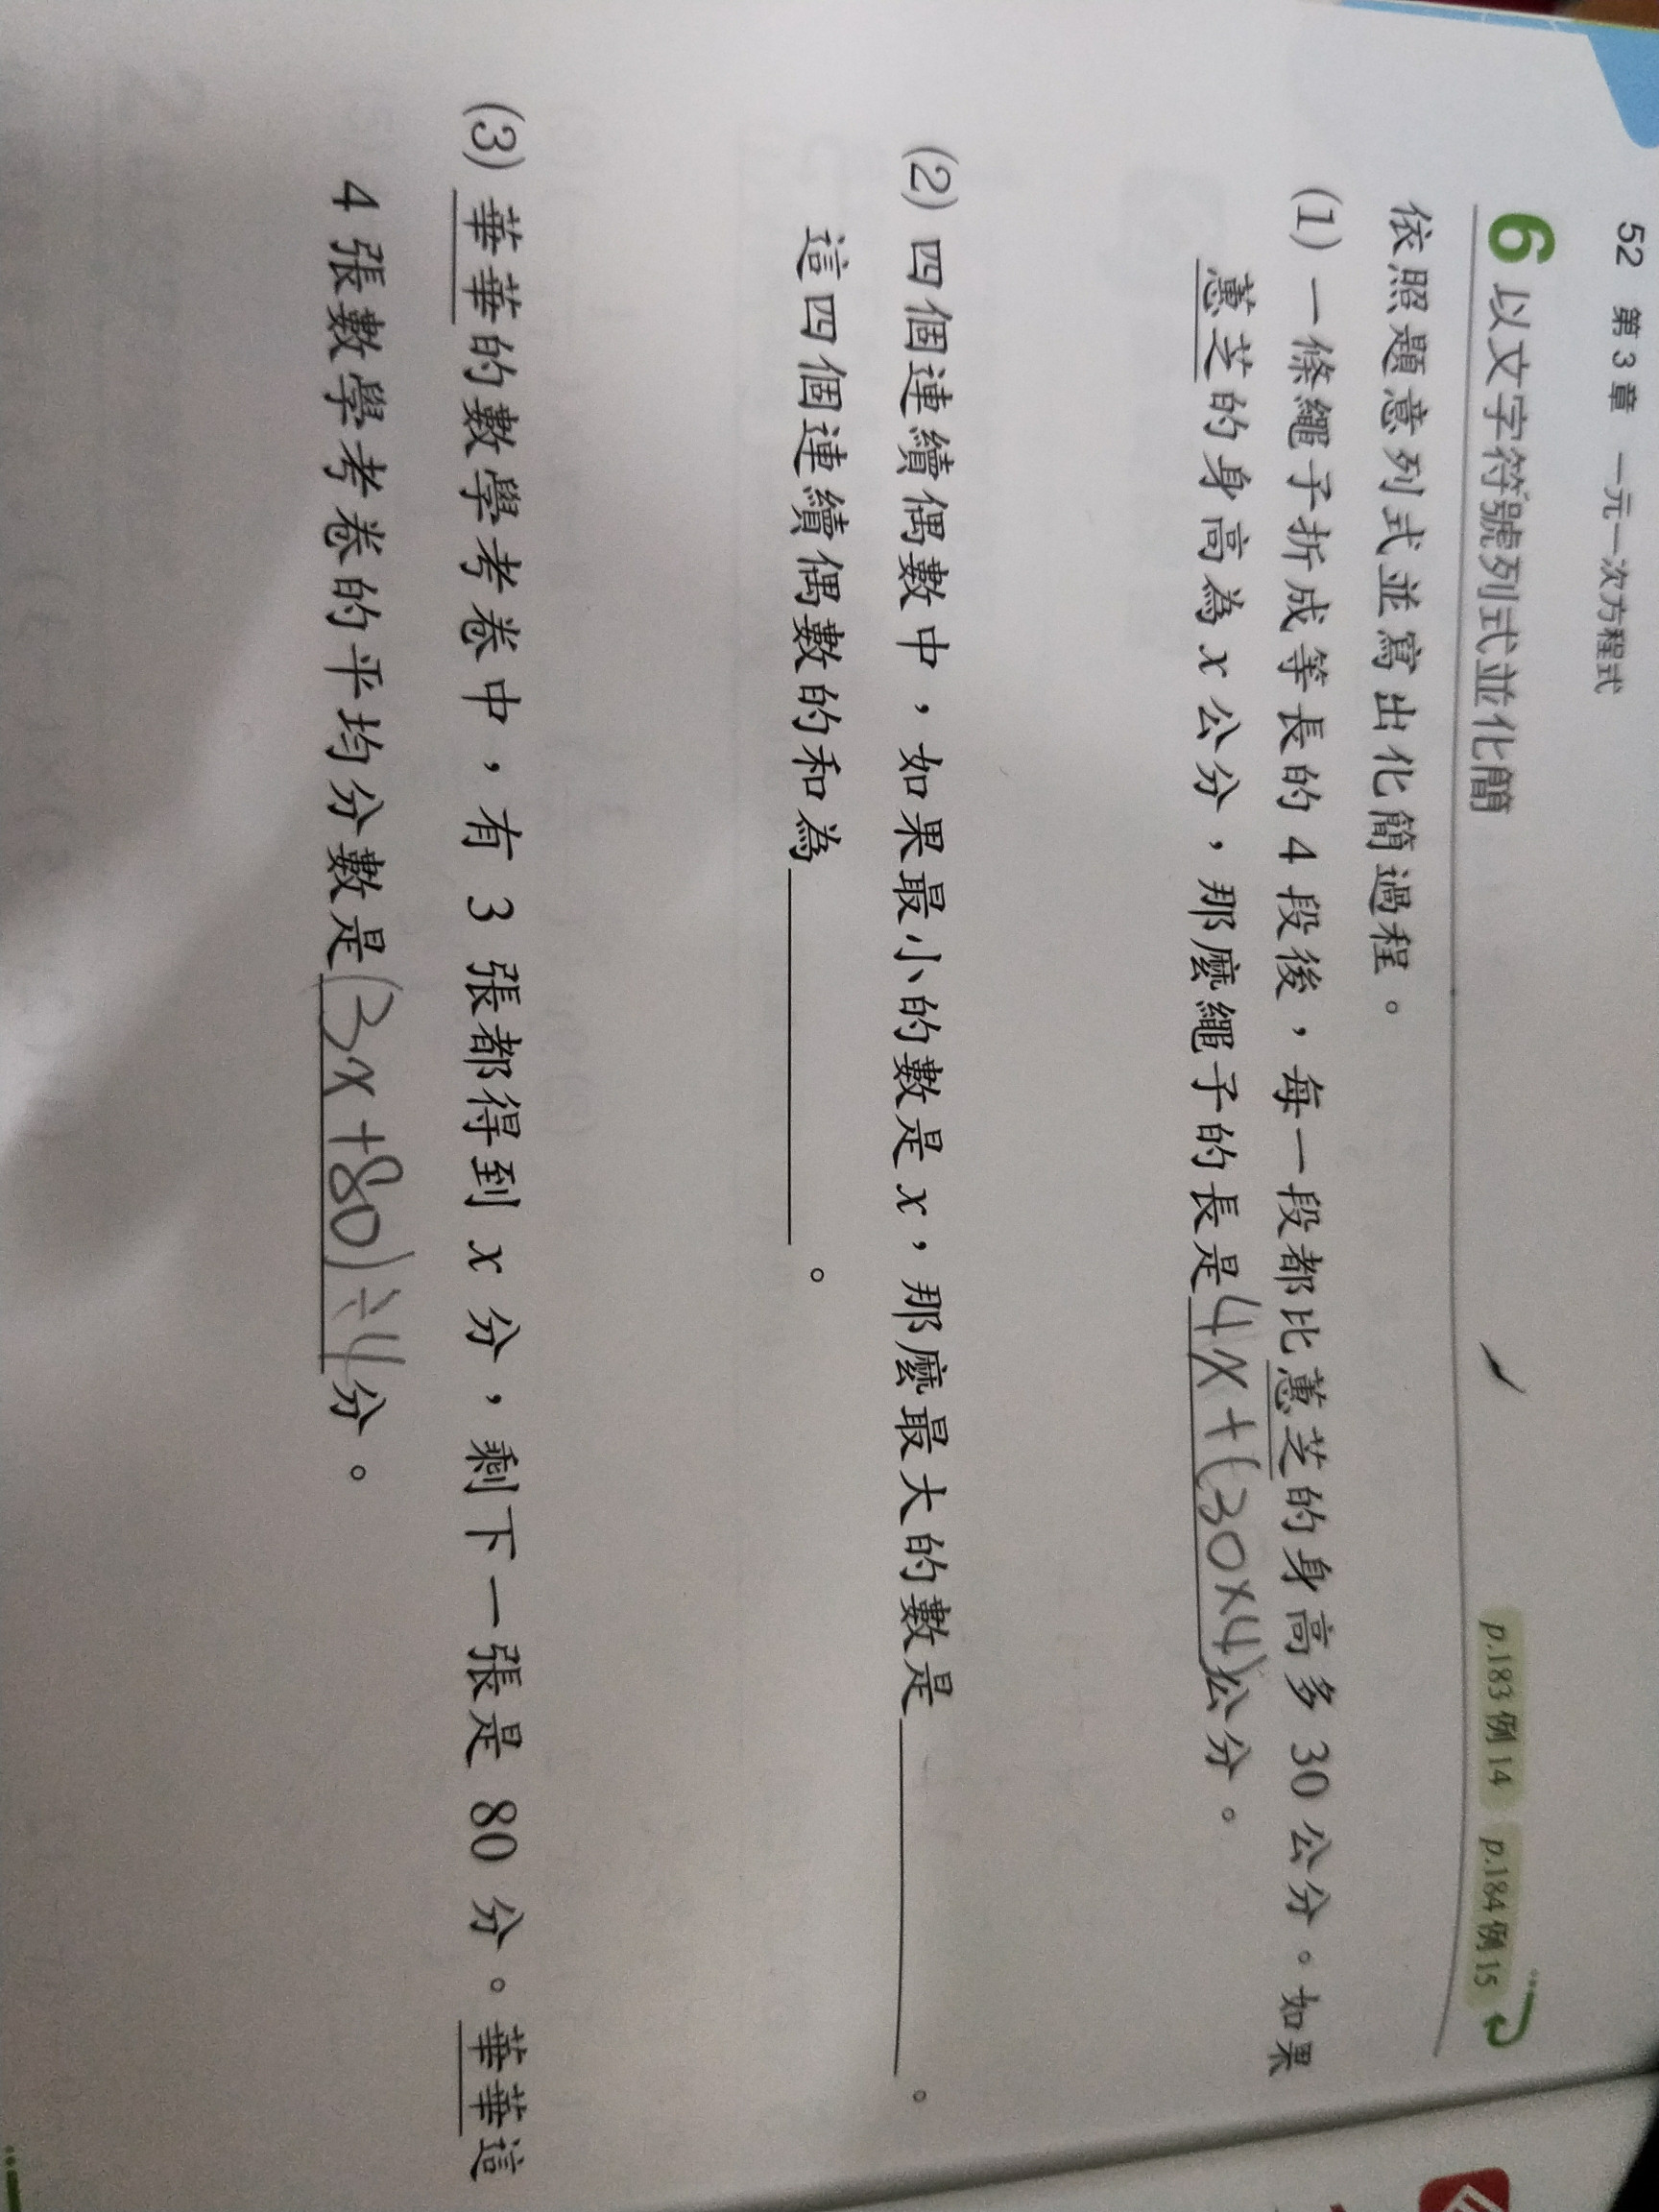 52 第 3 章 一元一次方程式
6 以文字符號列式並化簡 p.183 例 14 p.184 例 15
依照題意列式並寫出化簡過程。
(1) 一條繩子折成等長的 4 段後，每一段都比蕙芝的身高多 30 公分。如果
蕙芝的身高為 x 公分，那麼繩子的長是4x+(30×4)公分。
(2) 四個連續偶數中，如果最小的數是 x，那麼最大的數是＿＿＿＿＿＿。
這四個連續偶數的和為＿＿＿＿＿＿。
(3) 華華的數學考卷中，有 3 張都得到 x 分，剩下一張是 80 分。華華這
4 張數學考卷的平均分數是(3x+80)÷4分。